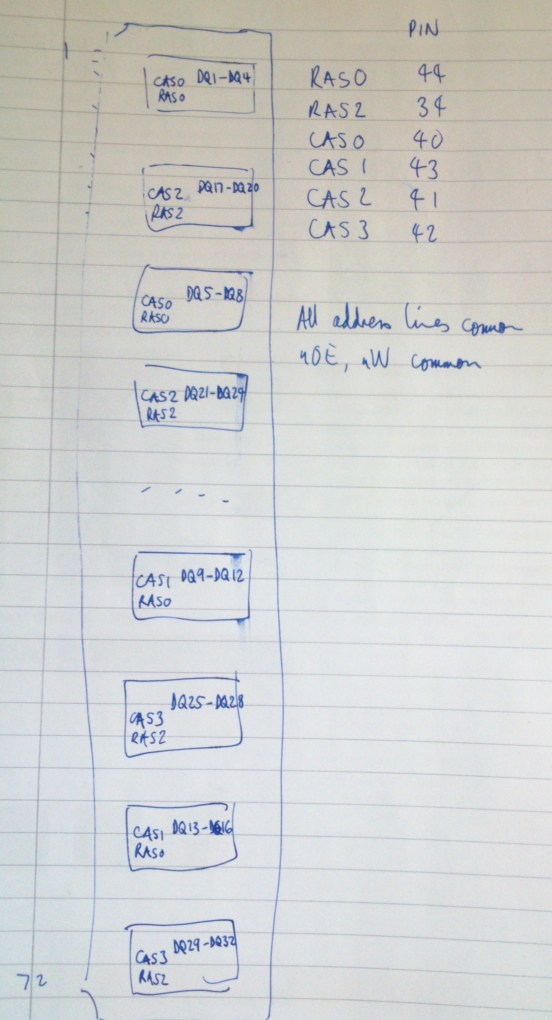 PIN
RAS0 44
RAS2 34
CAS0 40
CAS1 43
CAS2 41
CAS3 42
All address lines common
nOE, nW common
1
CAS0 DQ1-DQ4
RAS0
CAS2 DQ17-DQ20
RAS2
CAS0 DQ5-DQ8
RAS0
CAS2 DQ21-DQ24
RAS2
CAS1 DQ9-DQ12
RAS0
DQ25-DQ28
CAS3
RAS2
CAS1 DQ13-DQ16
RAS0
CAS3 DQ29-DQ32
RAS2
72